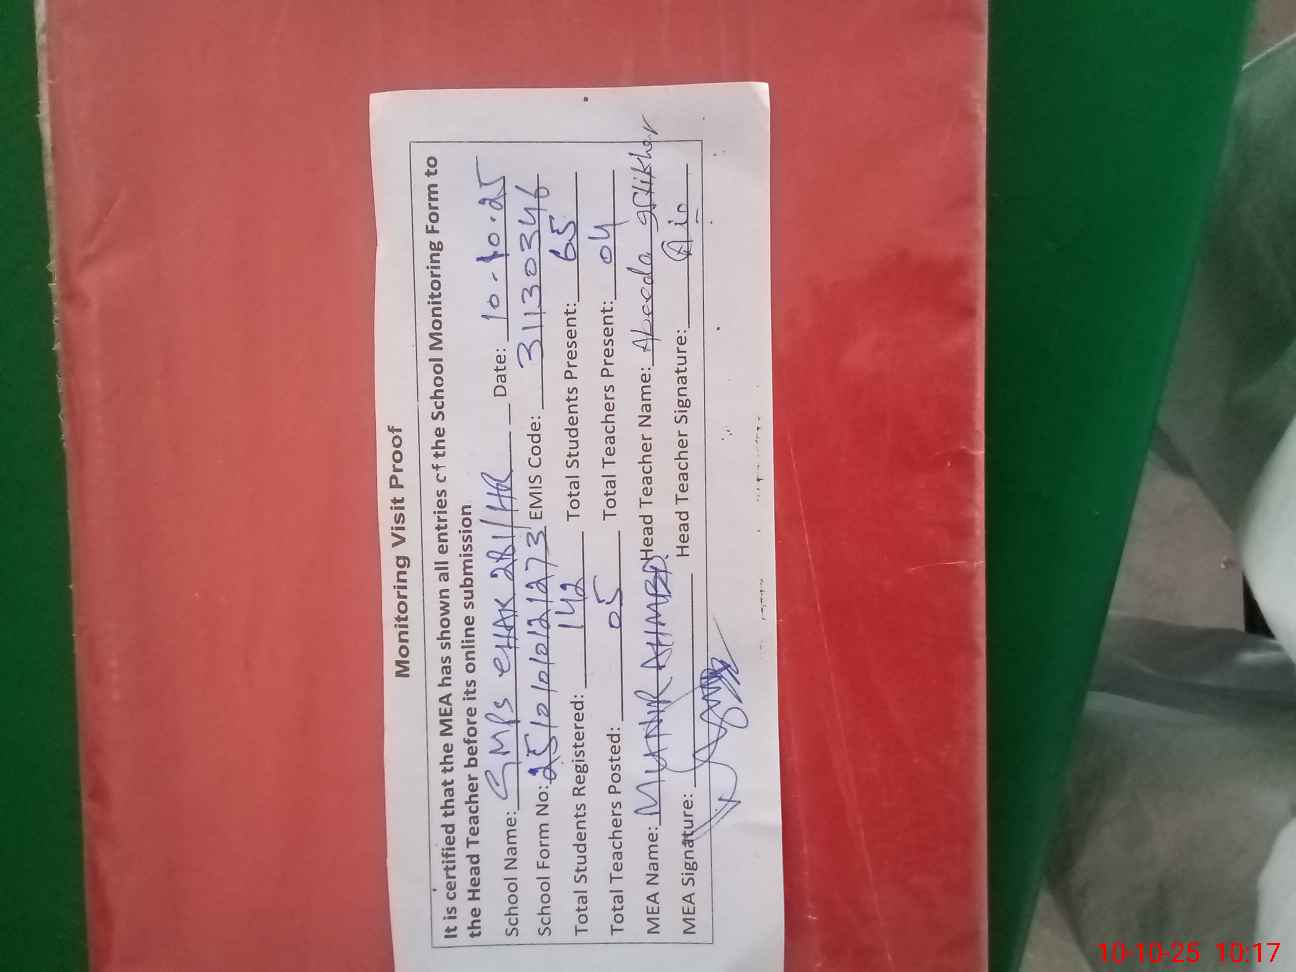 Monitoring Visit Proof
It is certified that the MEA has shown all entries of the School Monitoring Form to
the Head Teacher before its online submission
School Name: GMPS CHAK 281/HR Date: 10-10-25
School Form No: 251010121273 EMIS Code: 31130346
Total Students Registered: 142 Total Students Present: 65
Total Teachers Posted: 05 Total Teachers Present: 04
MEA Name: MUNIR AHMED Head Teacher Name: Abeeda Iftikhar
MEA Signature: Head Teacher Signature:
10-10-25 10:17